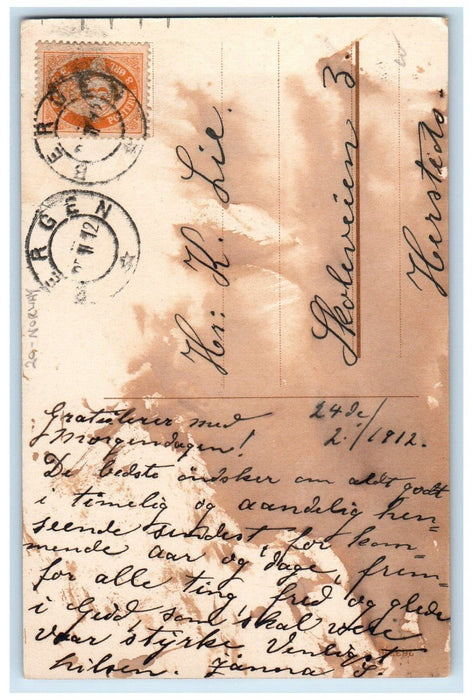 BERGEN
BERGEN
VI 12
29-NORWAY
Hr: K. Lie.
Skoleveien 3.
Herstads
Gratulerer med
Morgendagen!
24de/
2./1912.
De bedste öndsker om aldt godt
i timelig og aandelig hen-
seende sendest, for kom-
mende aar og dage, frem-
for alle ting, fred og glede
i Gud, som skal være
vaar styrke. Venligst
hilsen.